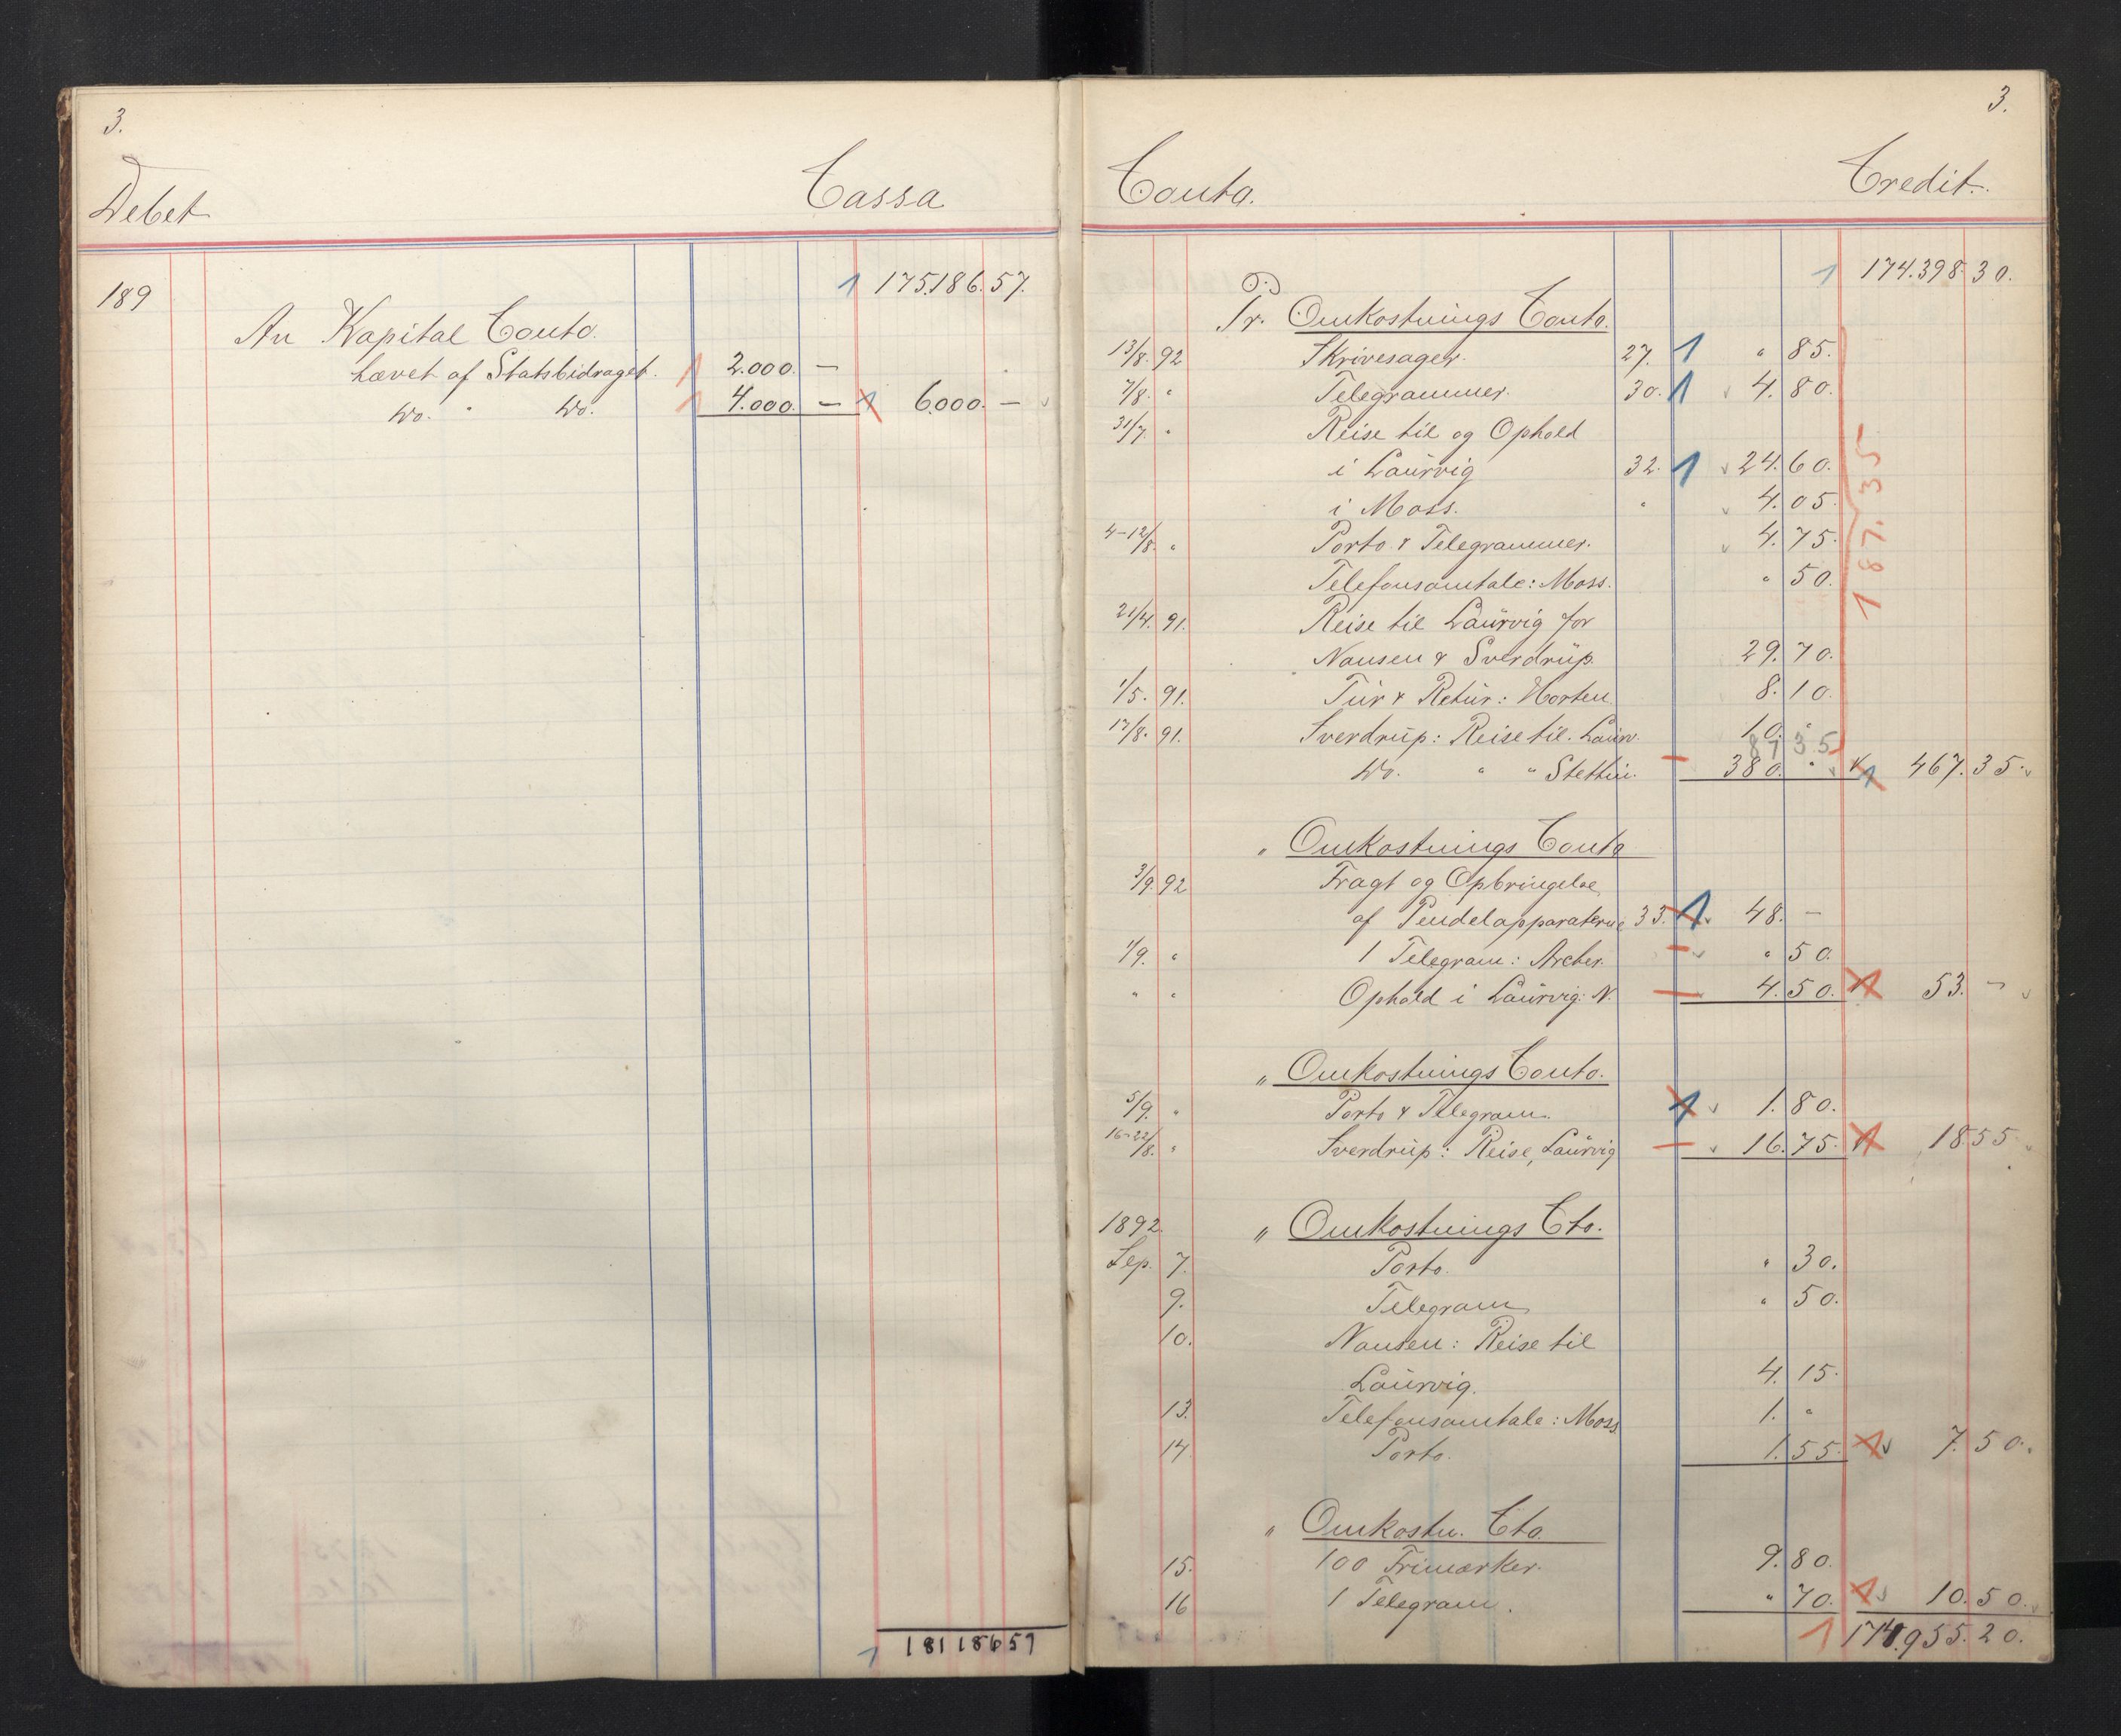 3.
Debet Cassa
189 175.186.57.
An Kapital Conto.
hævet af Statsbidraget. 2.000. —
Do. " Do. 4.000. — 6.000. —
181186 57
3.
Conto. Credit.
174.398.30.
Pr. Omkostnings Conto.
13/8. 92 Skrivesager. 27. " 85.
7/8. " Telegrammer. 30. 4.80.
31/7. " Reise til og Ophold
i Laurvig 32. 24.60.
i Moss. " 4.05.
4-12/8. " Porto & Telegrammer. 4.75.
Telefonsamtale: Moss. " 50.
21/4. 91. Reise til Laurvig for
Nansen & Sverdrup. 29.70.
1/5. 91. Tur & Retur: Horten. 8.10.
17/8. 91. Sverdrup: Reise til Laurv. 10. "
87 35
Do. " " Stettin. 380. " 467.35.
187.35
" Omkostnings Conto
3/9. 92 Fragt og Opbringelse
af Pendelapparaterne 33. 48. —
1/9. " 1 Telegram: Archer. " 50.
" " Ophold i Laurvig: N. 4.50. 53. —
" Omkostnings Conto.
5/9. " Porto & Telegram. 1.80.
16-22/8. " Sverdrup: Reise, Laurvig 16.75. 18.55
1892. " Omkostnings Cto.
Sep. 7. Porto. " 30.
9. Telegram " 50.
10. Nansen: Reise til
Laurvig. 4.15.
13. Telefonsamtale: Moss. 1. "
14. Porto. 1.55. 7.50.
" Omkostn. Cto.
15. 100 Frimærker. 9.80.
16 1 Telegram. " 70. 10.50.
174.955.20.